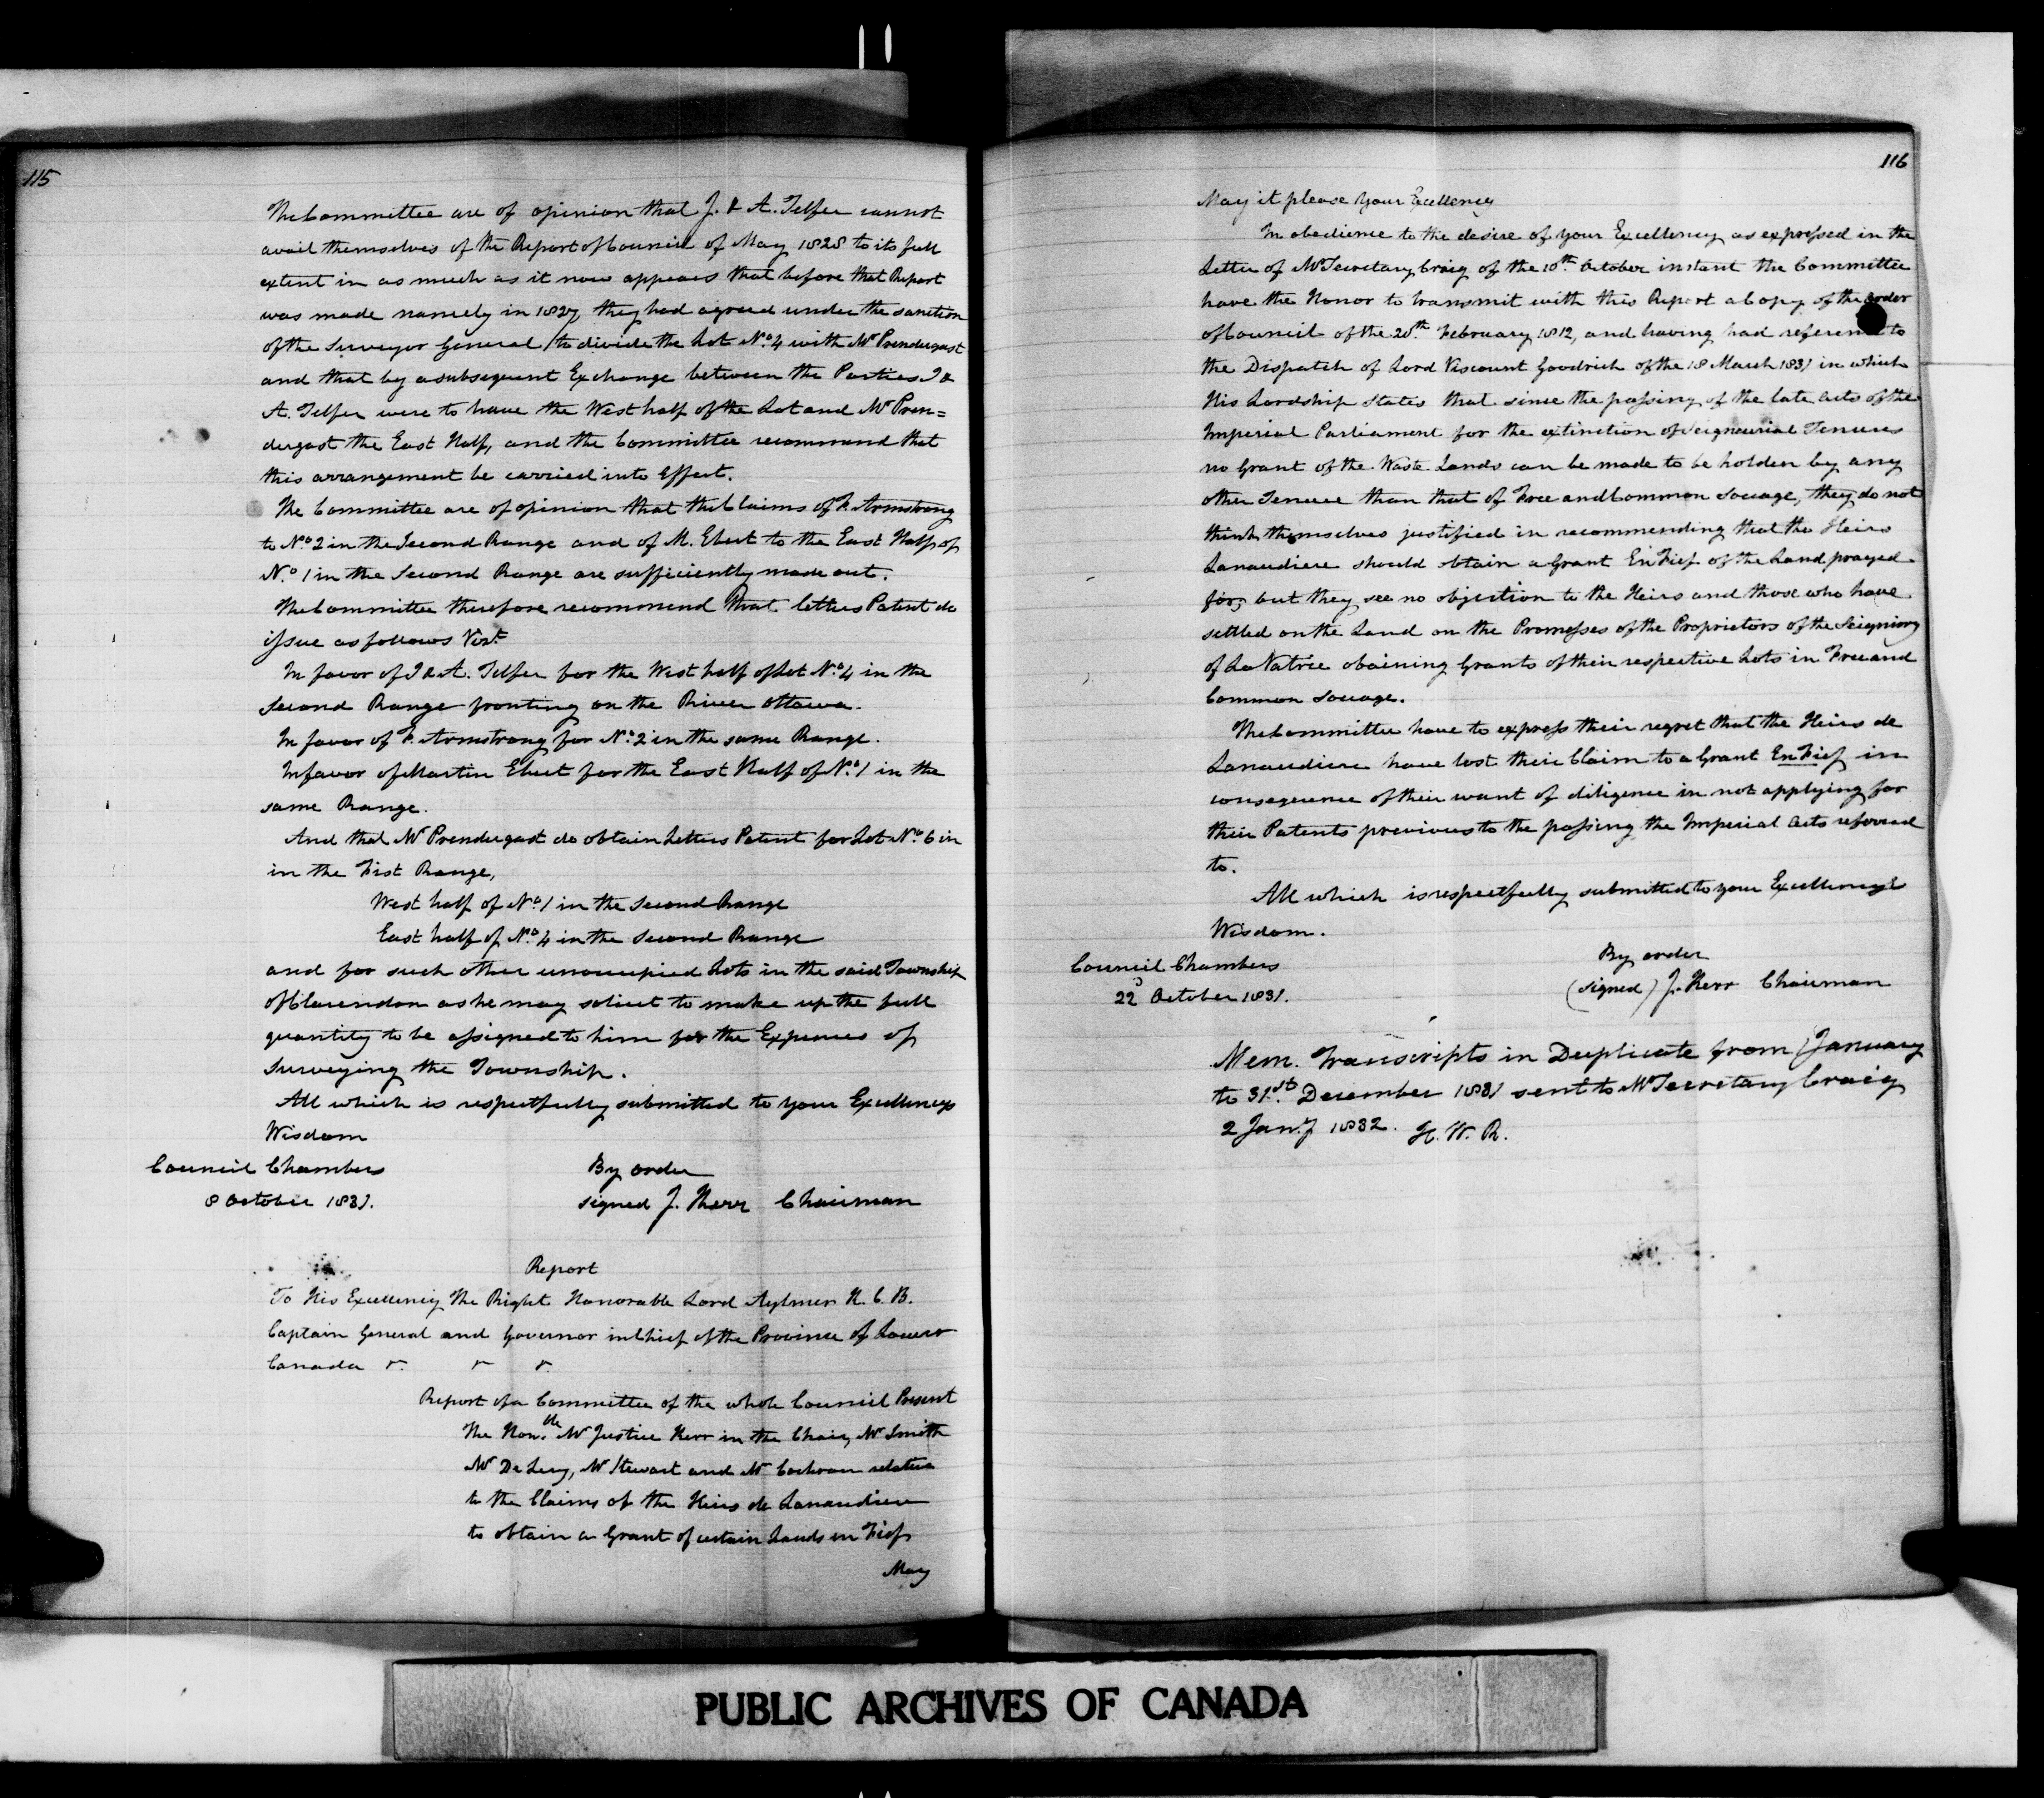 115
The Committee are of opinion that J. & A. Telfer cannot
avail themselves of the Report of Council of May 1828 to its full
extent in as much as it now appears that before that Report
was made namely in 1827 they had agreed under the sanction
of the Surveyor General to divide the Lot No. 4 with Mr Prendergast
and that by a subsequent Exchange between the Parties J &
A. Telfer were to have the West half of the Lot and Mr Pren=
dergast the East Half, and the Committee recommend that
this arrangement be carried into Effect.
The Committee are of opinion that the Claims of F. Armstrong
to No. 2 in the Second Range and of M. Ebert to the East Half of
No. 1 in the Second Range are sufficiently made out.
The Committee therefore recommend that letters Patent do
issue as follows Vizt.
In favor of J & A. Telfer for the West half of Lot No. 4 in the
Second Range fronting on the River Ottawa.
In favor of F. Armstrong for No. 2 in the same Range.
In favor of Martin Ebert for the East Half of No. 1 in the
same Range.
And that Mr Prendergast do obtain Letters Patent for Lot No. 6 in
in the First Range,
West half of No. 1 in the Second Range
East half of No. 4 in the Second Range
and for such other unoccupied Lots in the said Township
of Clarendon as he may solicit to make up the full
quantity to be assigned to him for the Expences of
Surveying the Township.
All which is respectfully submitted to your Excellencys
Wisdom
Council Chambers By order
8 October 1831. signed J. Kerr Chairman
Report
To His Excellency The Right Honorable Lord Aylmer K. C. B.
Captain General and Governor in Chief of the Province of Lower
Canada &. &. &.
Report of a Committee of the whole Council Present
The Honble. Mr Justice Kerr in the Chair, Mr Smith
Mr De Lery, Mr Stewart and Mr Cochran relative
to the Claims of the Heirs de Lanaudiere
to obtain a Grant of certain Lands en Fief
May
116
May it please Your Excellency
In obedience to the desire of your Excellency as expressed in the
Letter of Mr Secretary Craig of the 10th. October instant the Committee
have the Honor to transmit with this Report a Copy of the order
of Council of the 20th. February 1812, and having had reference to
the Dispatch of Lord Viscount Goodrich of the 18 March 1831 in which
His Lordship states that since the passing of the late acts of the
Imperial Parliament for the extinction of Seigneurial Tenures
no Grant of the Waste Lands can be made to be holden by any
other Tenure than that of Free and Common Soccage, they do not
think themselves justified in recommending that the Heirs
Lanaudiere should obtain a Grant En Fief of the Land prayed
for, but they see no objection to the Heirs and those who have
settled on the Land on the Promesses of the Proprietors of the Seigniory
of La Natrie obaining Grants of their respective Lots in Free and
Common Soccage.
The Committee have to express their regret that the Heirs de
Lanaudiere have lost their Claim to a Grant En Fief in
consequence of their want of diligence in not applying for
their Patents previous to the passing the Imperial Acts referred
to.
All which is respectfully submitted to your Excellency's
Wisdom.
Council Chambers By order
22d October 1831. (signed) J. Kerr Chairman
Mem. Transcripts in Duplicate from 1 January
to 31st. December 1831 sent to Mr Secretary Craig
2 Jany. 1832. H. W. R.
PUBLIC ARCHIVES OF CANADA